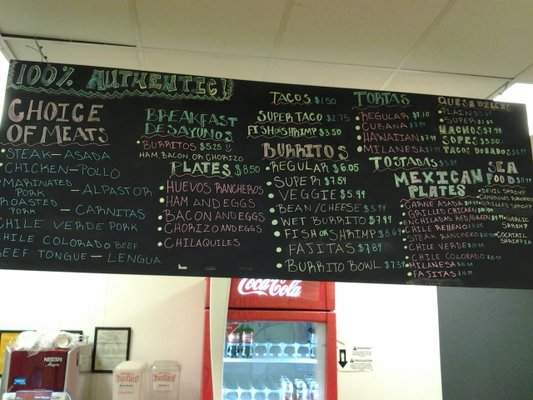 100% AUTHENTIC!
CHOICE
OF MEATS
STEAK-ASADA
CHICKEN-POLLO
MARINATED
PORK -ALPASTOR
ROASTED
PORK -CARNITAS
CHILE VERDE PORK
CHILE COLORADO BEEF
BEEF TONGUE - LENGUA
BREAKFAST
DESAYUNOS
BURRITOS $5.25
HAM, BACON, OR CHORIZO
PLATES $8.50
HUEVOS RANCHEROS
HAM AND EGGS
BACON AND EGGS
CHORIZO AND EGGS
CHILAQUILES
TACOS $1.50
SUPER TACO $2.75
FISH OR SHRIMP $3.50
BURRITOS
REGULAR $6.05
SUPER $7.59
VEGGIE $5.99
BEAN/CHEESE
WET BURRITO $7.99
FISH OR SHRIMP
FAJITAS
BURRITO BOWL
TORTAS
REGULAR
CUBANA
HAWAIIAN
MILANESA
TOSTADAS
MEXICAN
PLATES
CARNE ASADA
GRILLED CHICKEN
ENCHILADAS
CHILE RELLENO
STEAK RANCHERO
CHILE VERDE
CHILE COLORADO
MILANESA
FAJITAS
PLAIN
SUPER
NACHOS
SOPES
TACOS DORADOS
SEA
FOOD
DEVIL SHRIMP
GARLIC
SHRIMP
COCKTAIL
SHRIMP
Coca-Cola
NESCAFÉ